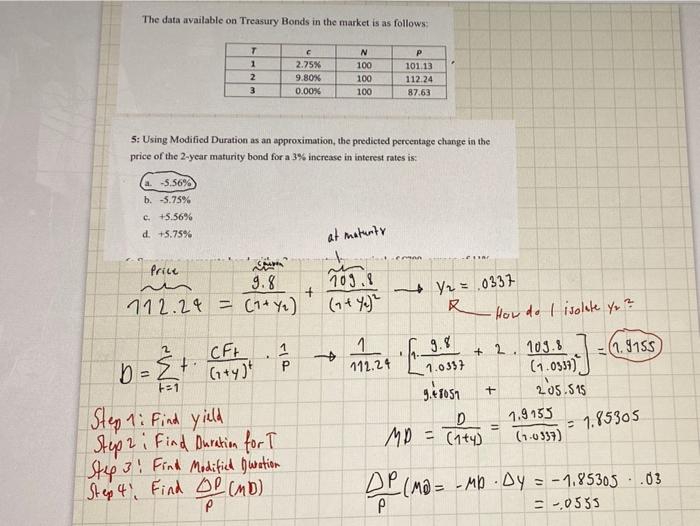 The data available on Treasury Bonds in the market is as follows:
T c N P
1 2.75% 100 101.13
2 9.80% 100 112.24
3 0.00% 100 87.63
5: Using Modified Duration as an approximation, the predicted percentage change in the
price of the 2-year maturity bond for a 3% increase in interest rates is:
a. -5.56%
b. -5.75%
c. +5.56%
d. +5.75%
at maturity
Price
112.24 = 9.8 / (1+y₂) + 109.8 / (1+y₂)² → y₂ = .0337
How do I isolate y₂?
D = Σ t=1 2 t · CFt / (1+y)^t · 1/P → 1/112.24 · [1 · 9.8/1.0337 + 2 · 109.8/(1.0337)²] = 1.9155
+ 205.515
Step 1: Find yield
Step 2: Find Duration for T
Step 3: Find Modified Duration
Step 4: Find ΔP/P (MD)
MD = D/(1+y) = 1.9155/(1.0337) = 1.85305
ΔP/P (MD) = -MD · Δy = -1.85305 · .03
= -.0555